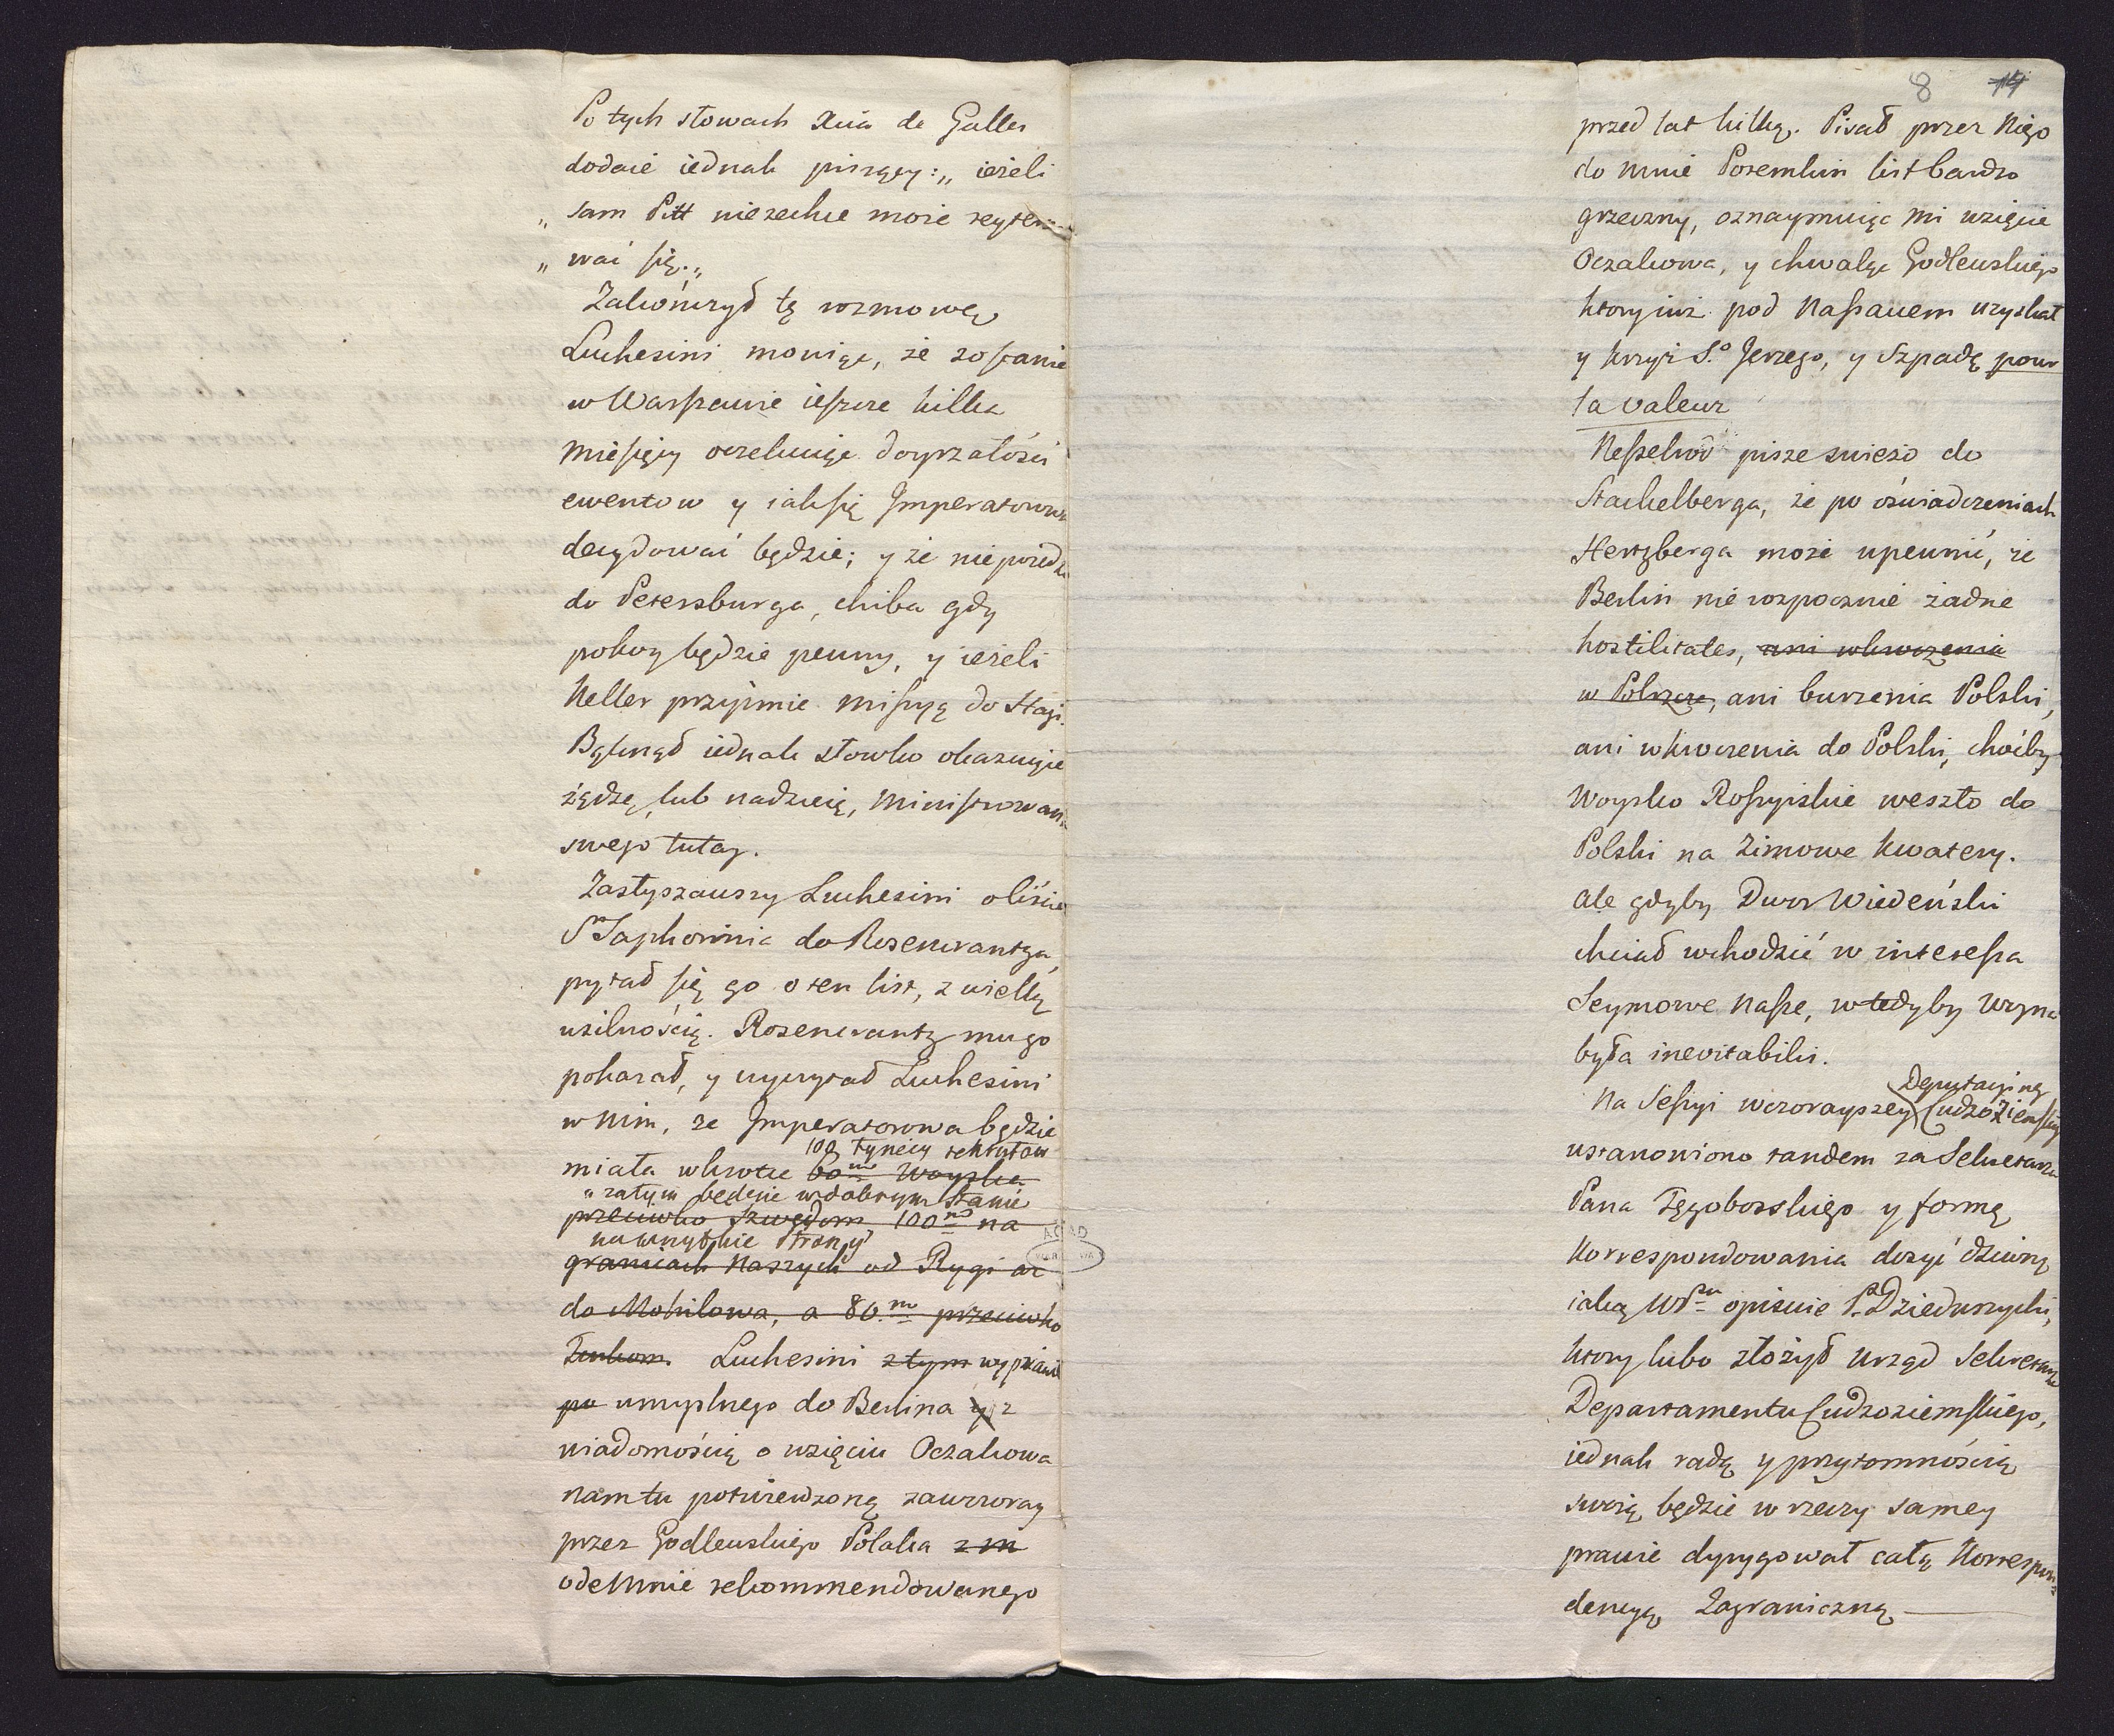 Po tych słowach Xcia de Galles
dodaie iednak piszący: „ ieżeli
„ sam Pitt niezechce może reytero
„ wać się. „
Zakończył tę rozmowę
Luchesini mowiąc, że zostanie
w Warszawie ieszcze kilka
miesięcy oczekuiąc doyrzałości
ewentow y iak się Imperatorowa
decydować będzie; y że niepoiedzie
do Petersburga, chiba gdy
pokoy będzie pewny, y ieżeli
Keller przyimie missyą do Hagi.
Bąknął iednak słowko okazuiące
żądzę, lub nadzieię, Ministrowania
swego tutay.
Zasłyszawszy Luchesini o liście
St Saphorinia do Rosencrantza,
pytał się go o ten list, z wielką
usilnością. Rosencrantz mu go
pokazał, y wyczytał Luchesini
w nim, że Imperatorowa będzie
100 tyṡięcy rekrutow
miała wkrotce 60m Woyska
a zatym będzie w dobrym stanie
przeciwko Szwedom, 100m na
na wszystkie strony
granicach naszych od Rygi aż
do Mohilowa, a 80m przeciwko
Turkom. Luchesini z tym wyprawił
po umyslnego do Berlina y z
wiadomością o wzięciu Oczakowa
nam tu potwierdzoną zawczoray
przez Godlewskiego Polaka z m
odemnie rekommendowanego
8 14
przed lat kilką. Pisał przez Niego
do mnie Potemkin list bardzo
grzeczny, oznaymuiąc mi wzięcie
Oczakowa, y chwaląc Godlewskiego
ktory iuż pod Nassauem uzyskał
y krzyż S.o Jerzego, y Szpadę pour
la valeur
Nesselrod pisze swieżo do
Stackelberga, że po oświadczeniach
Hertzberga może upewnić, że
Berlin nie rozpocznie żadne
hostilitates, ani wkroczenia
w Polszcze, ani burzenia Polski,
ani wkroczenia do Polski, choćby
Woysko Rossyiskie weszło do
Polski na Zimowe kwatery.
ale gdyby Dwor Wiedeński
chciał wchodzić w interessa
Seymowe nasze, wtedyby Woyna
była inevitabilis.
Deputacyiney
Na Sessyi wczorayszey Cudzoziemskiey
ustanowiono tandem za Sekretarza
Pana Tęgoborskiego y formę
Korrespondowania dosyć dziwną
iaką WPanu opisuie P. Dzieduszycki,
ktory lubo złożył Urząd Sekretarza
Departamentu Cudzoziemskiego,
iednak radą y przytomnością
swoią będzie w rzeczy samey
prawie dyrygował całą Korrespon
dencyą Zagraniczną